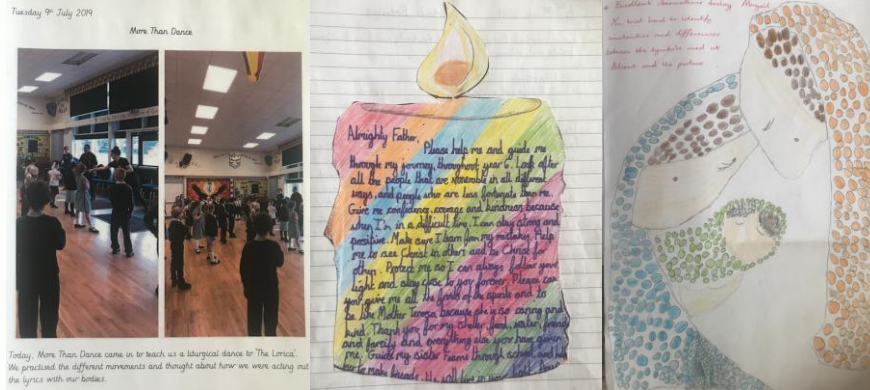 Tuesday 9th July 2019
More Than Dance
Today, More Than Dance came in to teach us a liturgical dance to 'The Lorica'.
We practised the different movements and thought about how we were acting out
the lyrics with our bodies.
Almighty Father,
Please help me and guide me
through my journey, throughout year 6. Look after
all the people that are vulnerable in all different
ways, and people who are less fortunate than me.
Give me confidence, courage and kindness because
when I'm in a difficult time, I can stay strong and
positive. Make sure I learn from my mistakes. Help
me to see Christ in others and be Christ for
other. Protect me so I can always follow your
light and stay close to you forever. Please can
you give me all the fruits of the and to
be like Mother Teresa because she is so caring and
kind. Thank you for my shelter, food, water, friends
and family and everything else you have given
me. Guide my sister through school and help
her to make friends. We will live in your
Excellent
You tried hard to identify
similarities and differences
between the symbols used at
and the picture.